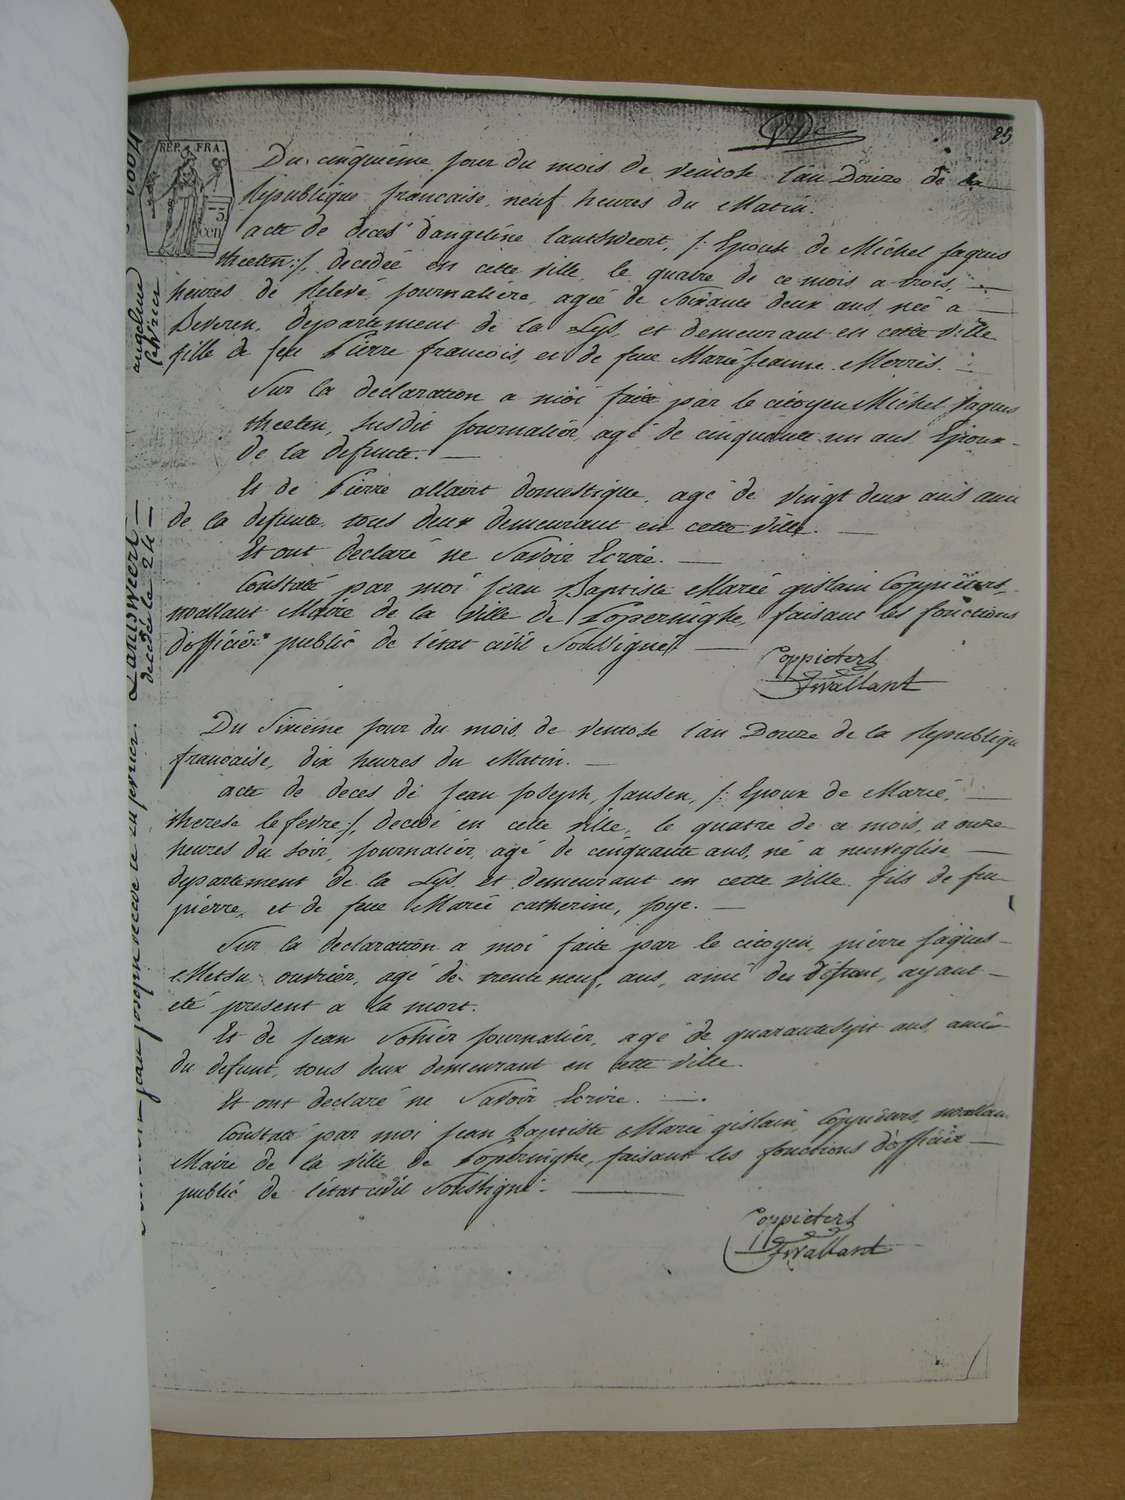 25
REP. FRA.
5
cen
Du cinquiéme jour du mois de ventose l'an Douze de la
Republique francaise, neuf heures du Matin.
acte de deces d'angeline Lantsweert, /: Epouse de Michel Jaques
theeten :/, decedée en cette ville, le quatre de ce mois a trois
heures de Relevé, journaliere, ageé de Soixante deux ans, neé a
Beveren, departement de la Lys, et demeurant en cette ville
fille de feu Pierre francois, et de feue Marie Jeanne Merris.
Sur la declaration a moi faite par le citoyen Michel Jaques
theeten, Susdit journalier, agé de cinquante un ans Epoux
de la defunte.
Et de Pierre allaert domestique, agé de vingt deux ans ami
de la defunte, tous deux demeurant en cette ville.
Et ont declaré ne Savoir Ecrire.
Constaté par moi Jean Baptiste Marie gislain Coppieters,
wallant Maire de la ville de Poperinghe, faisant les fonctions
d'officier public de l'etat civil Soussigné
Coppieters
wallant
angeline
fevrier
Lantswert
decede le 24
Du Sixiéme jour du mois de ventose l'an Douze de la Republique
francaise, dix heures du Matin.
acte de deces de Jean Joseph, Jansen, /: Epoux de Marie
therese lefevre :/, decedé en cette ville, le quatre de ce mois, a onze
heures du Soir, journalier, agé de cinquante ans, né a neuveglise
departement de la Lys, et demeurant en cette ville fils de feu
pierre, et de feue Marie catherine, foye.
Sur la declaration a moi faite par le citoyen, pierre jaques
Metsu ouvrier, agé de trente neuf, ans, ami du defunt, ayant
eté present a la mort.
Et de Jean Sohier journalier, agé de quarante Sept ans, ami
du defunt, tous deux demeurant en cette ville.
Et ont declaré ne Savoir Ecrire.
Constaté par moi Jean baptiste Marie gislain Coppieters, wallant
Maire de la ville de Poperinghe, faisant les fonctions d'officier
public de l'etat civil Soussigné.
Coppieters
wallant
jean joseph decede le 24 fevrier.